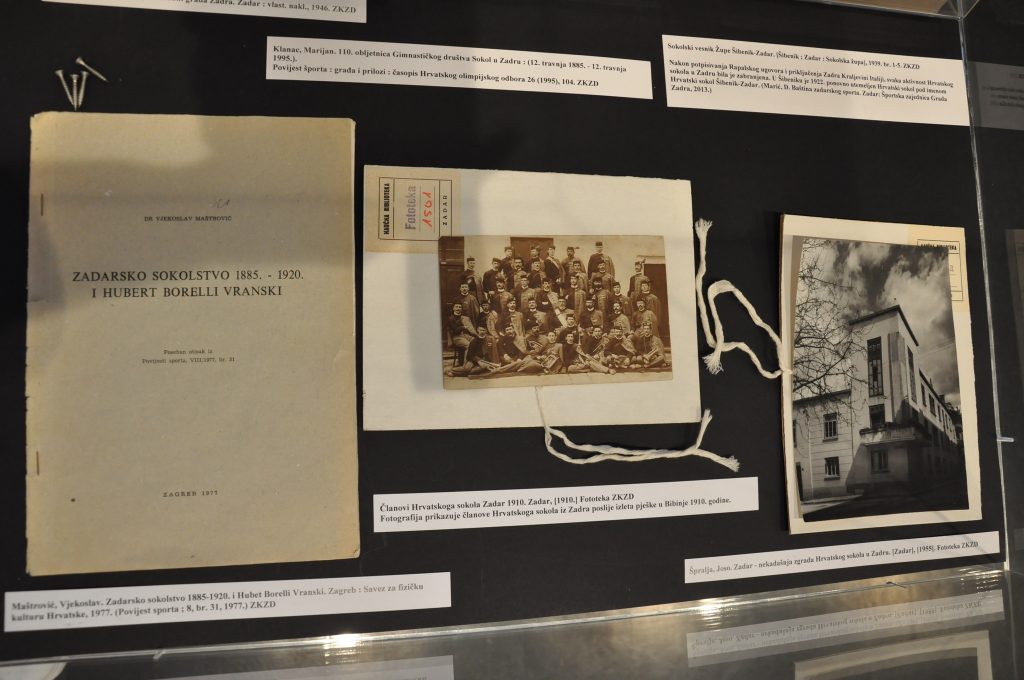 grada Zadra. Zadar : vlast. nakl., 1946. ZKZD
Klanac, Marijan. 110. obljetnica Gimnastičkog društva Sokol u Zadru : (12. travnja 1885. - 12. travnja
1995.).
Povijest športa : građa i prilozi : časopis Hrvatskog olimpijskog odbora 26 (1995), 104. ZKZD
Sokolski vesnik Župe Šibenik-Zadar. [Šibenik ; Zadar : Sokolska župa], 1939, br. 1-5. ZKZD
Nakon potpisivanja Rapalskog ugovora i priključenja Zadra Kraljevini Italiji, svaka aktivnost Hrvatskog
sokola u Zadru bila je zabranjena. U Šibeniku je 1922. ponovno utemeljen Hrvatski sokol pod imenom
Hrvatski sokol Šibenik-Zadar. (Marić, D. Baština zadarskog sporta. Zadar: Športska zajednica Grada
Zadra, 2013.)
DR VJEKOSLAV MAŠTROVIĆ
ZADARSKO SOKOLSTVO 1885. - 1920.
I HUBERT BORELLI VRANSKI
Poseban otisak iz
Povijesti sporta, VIII/1977, br. 31
ZAGREB 1977
NAUČNA BIBLIOTEKA
Fototeka
1501
ZADAR
Članovi Hrvatskoga sokola Zadar 1910. Zadar, [1910.] Fototeka ZKZD
Fotografija prikazuje članove Hrvatskoga sokola iz Zadra poslije izleta pješke u Bibinje 1910. godine.
Špralja, Joso. Zadar - nekadašnja zgrada Hrvatskog sokola u Zadru. [Zadar], [1955]. Fototeka ZKZD
Maštrović, Vjekoslav. Zadarsko sokolstvo 1885-1920. i Hubet Borelli Vranski. Zagreb : Savez za fizičku
kultura Hrvatske, 1977. (Povijest sporta ; 8, br. 31, 1977.) ZKZD